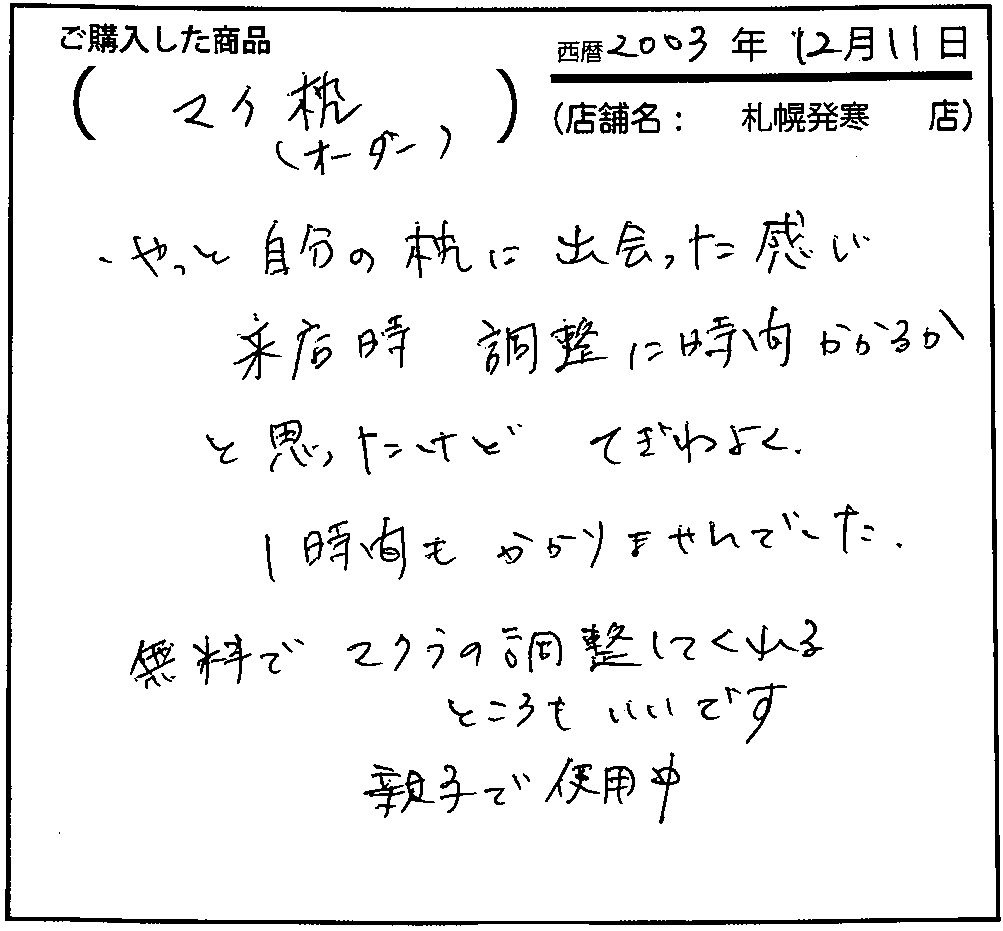 ご購入した商品
西暦2003年12月11日
(マイ枕
(オーダー))
(店舗名: 札幌発寒 店)
・やっと自分の枕に出会った感じ
来店時 調整に時間かかるか
と思ったけど てぎわよく.
1時間もかかりませんでした.
無料でマクラの調整してくれる
ところもいいです
親子で使用中